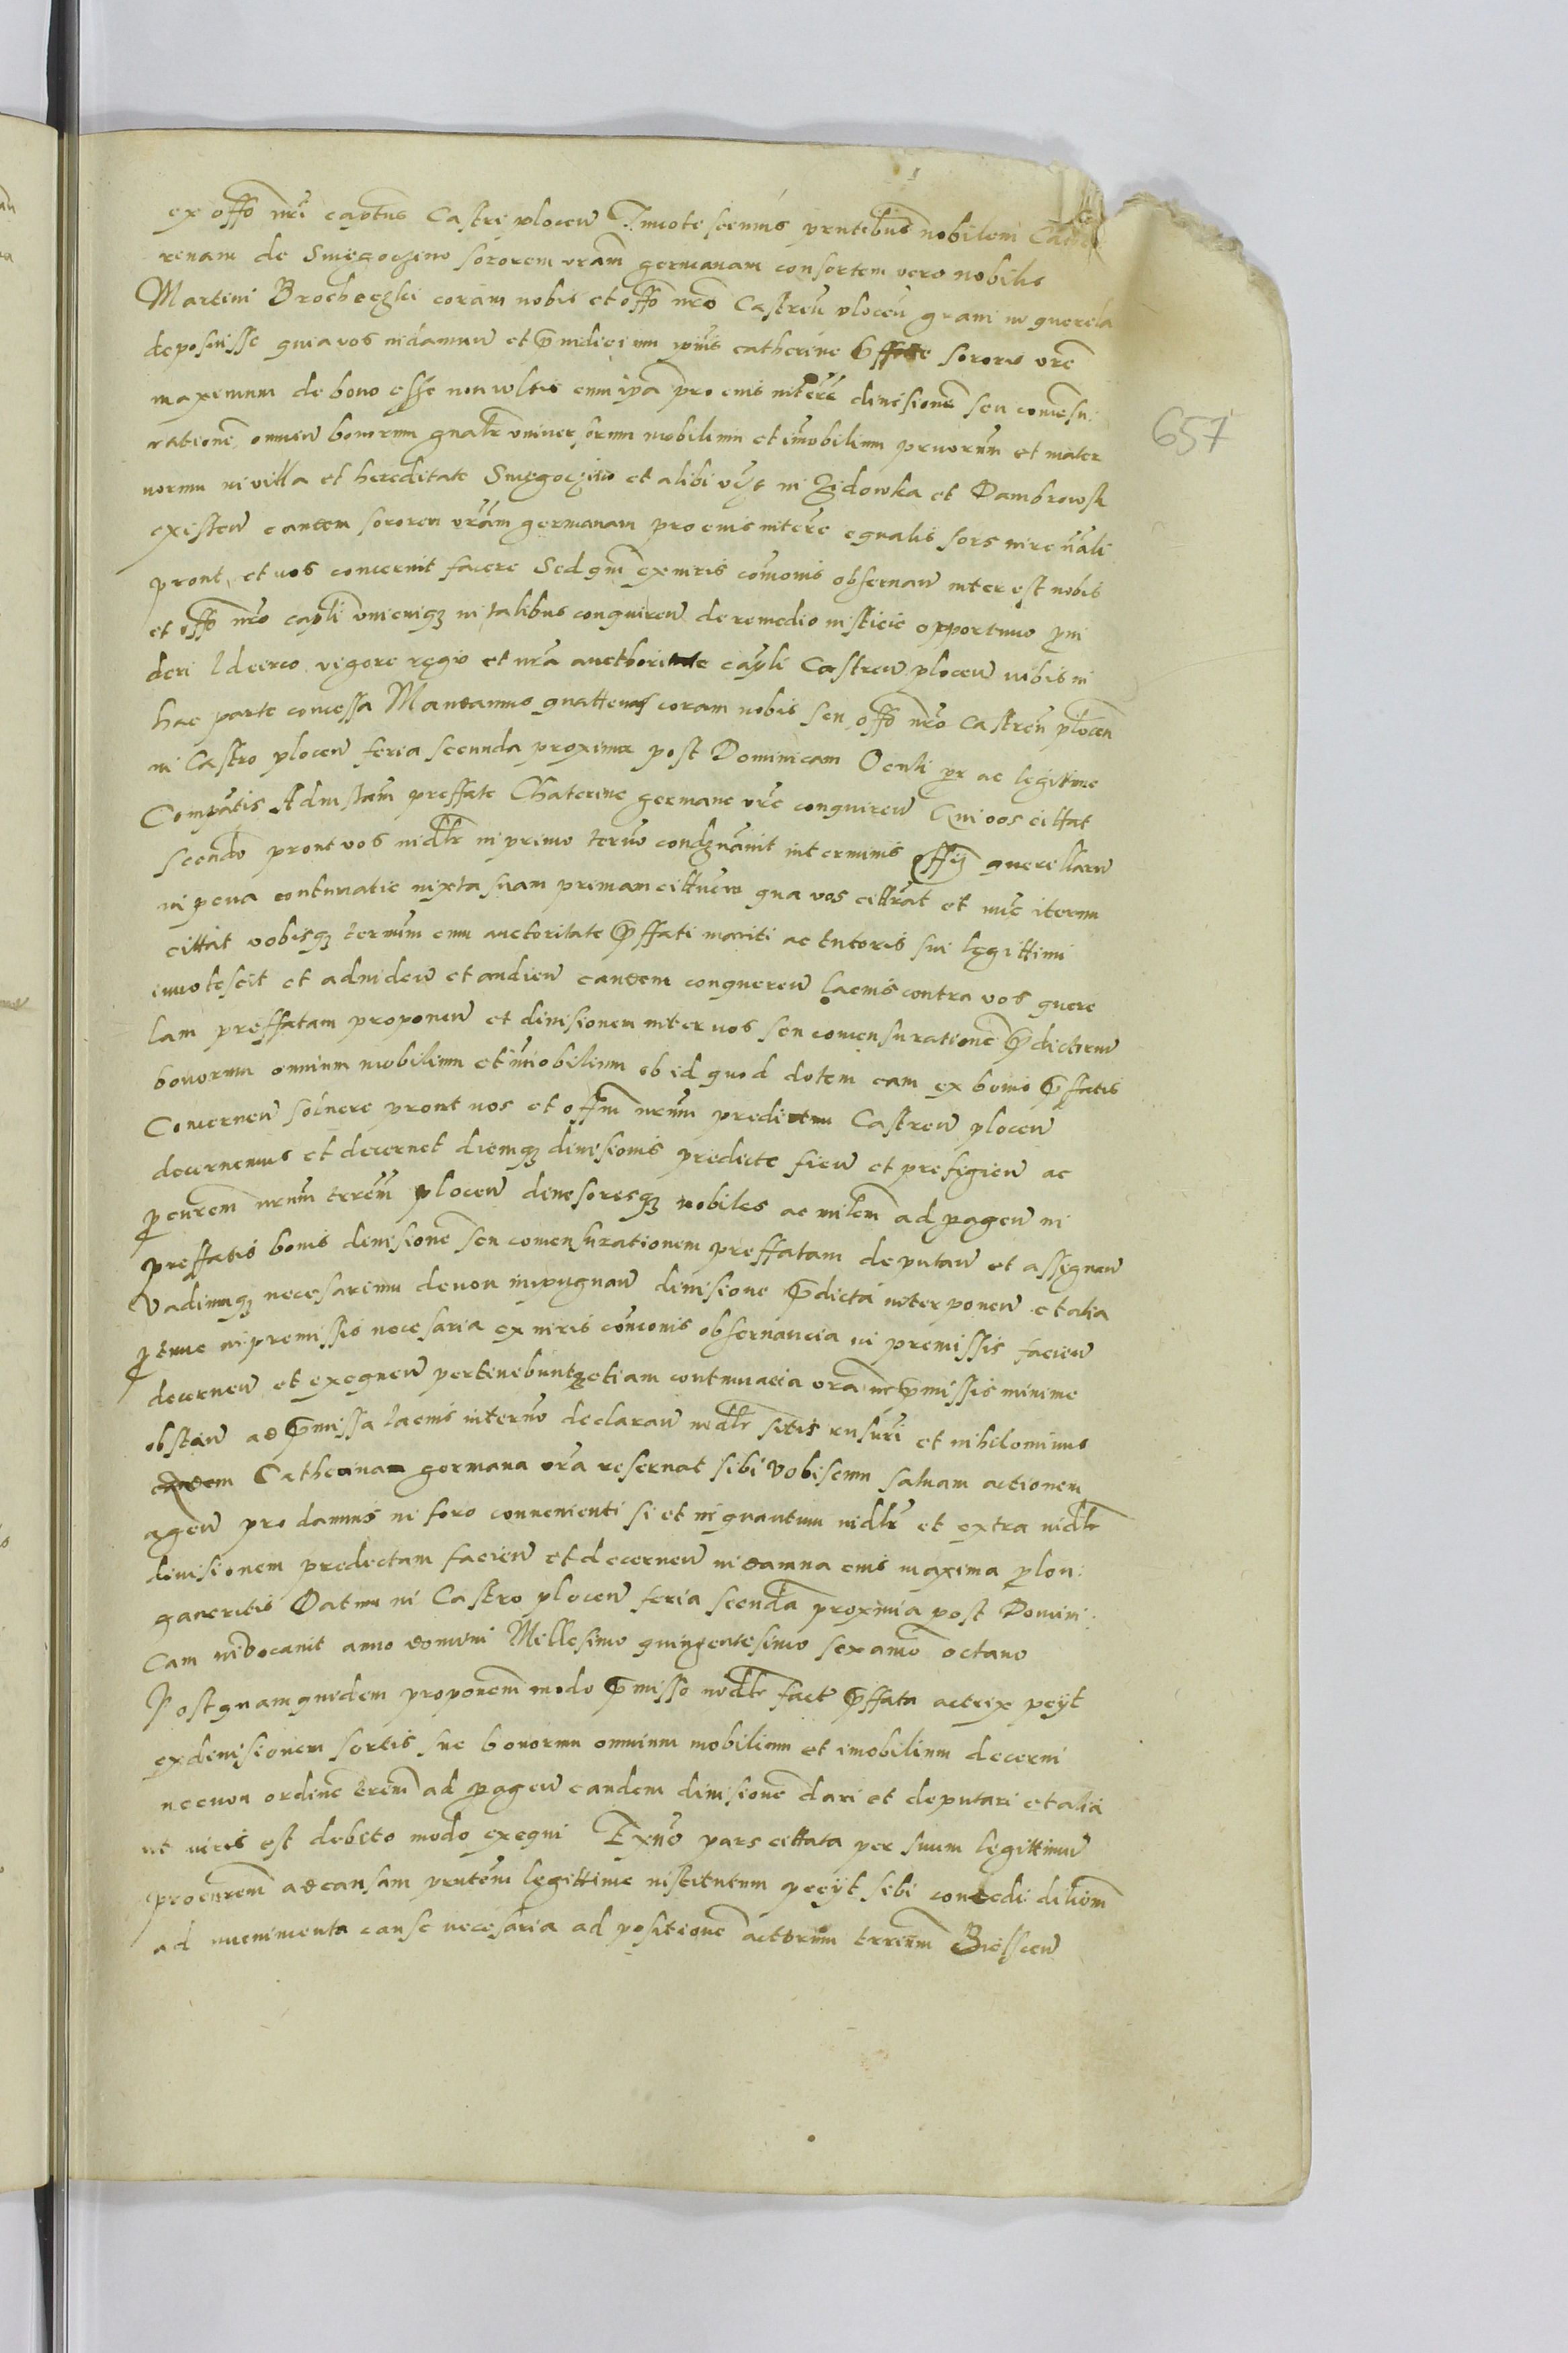 ex offo nri captus Castri plocen Innotescimus pntibus nobilem Cathe
renam de Smegoczino sororem vram germanam consortem vero nobilis
Martini Brochoczki coram nobis et offo nro Castren plocen gravi in querela
deposuisse quia vos in damnum et preiudicium ipsius catherine pffate sororis vre
maxemum de bono esse non vultis cum ipa pro eius interesse divisione seu comesu
ratione omnium bonorum gnalr universorum mobilium et imobilium prnorum et mater
norum in villa et hereditate Smegoczino et alibi in Zidowka et Dambrowsk
existen eandem sororem vram germanam pro eius interesse equalis sors
prout et vos concernit facere Sed qm ex iuris comonis observan interest nobis
et offo nro capli unicuiq in talibus conquiren de remedio iusticie opportuno pvi
deri Idcirco vigore regio et nra aucthoritate capli Castren plocen nobis in
hac parte concessa Mandamus quattenus coram nobis seu offo nro Castren plocen
in Castro plocen feria secunda proxima post Dominicam Oculi pr ac legitime
Compatis Ad instam preffate Chaterine germane vre conquiren Qui vos cittat
secundo prout vos videlr in primo termo condgnavit in terminis offy querellarum
in pena contumatie iuxta suam primam cittnem qua vos cittrat et nuc iterum
cittat vobisq termum cum auctoritate pffati mariti ac tutoris sui legittimi
innotescit et ad viden et audien eandem conqueren lacius contra vos quere
lam preffatam proponen et divisionem inter vos seu comensuratione pdictrum
bonorum omnium mobilium et imobilium ob id quod dotem eam ex bonis pffatis
Concernen solvere prout nos et offm nrum predictum Castren plocen
decernemus et decernet diemq divisionis predicte fien et prefigien ac
pcurem nrum trrem plocen divisoresq nobiles ac milem ad pagen in
preffatis bonis divisione seu comensurationem preffatam deputan et assignan
Vadiumq necesarium de non inpugnan divisione pdicta interponen et alia
ptunc in premissis necesaria ex iuris comonis observancia in premissis facien
decernen et exequen pertinebunt etiam contumacia vra in pmissis minime
obstan ad pmissa lacius in termo declaran videlr sitis rnsuri et nihilominus
eadem Catherina germana vra reservat sibi Vobiscum salvam actionem
agen pro damnis in foro convenienti si et in quantum vidlr et extra vidlr
divisionem predictam facien et decernen in damna eius maxima plon
gaveritis Datum in Castro plocen feria secunda proxima post Domini
Cam invocavit anno domini Millesimo quingentesimo sexamo octavo
Postquamquidem proponem modo pmisso vidlr fact pffata actrix peyt
ex divisionem sortis sue bonorum omnium mobilium et imobilium decerni
necnon ordine trrem ad pagen eandem divisione dari et deputari et alia
ut iuris est debito modo exequi Exno pars cittata per suum legittimum
procurem ad causam pntem legittime institutum peeyt sibi concedi dilionem
ad munimenta cause necesaria ad positione actorum trrenm Bielscen
657